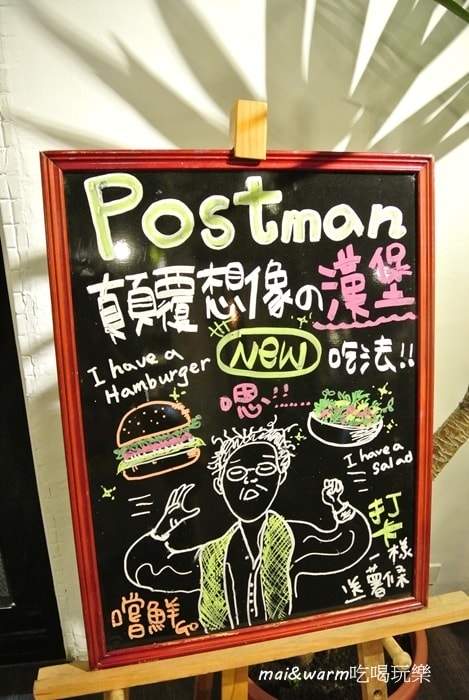 Postman
顛覆想像の漢堡
NEW 吃法!!
I have a
Hamburger
嗯!!......
I have a
salad
打卡
一樣
送薯條
嚐鮮go
mai&warm吃喝玩樂